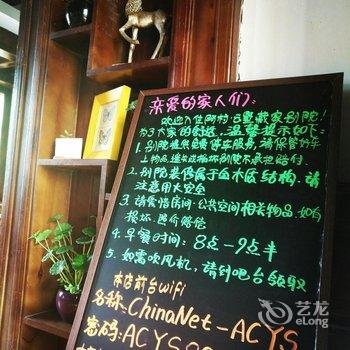 亲爱的家人们:
欢迎入住阿村·己墅藏家别院!
为了大家的舒适,温馨提示如下:
1. 别院提供免费停车服务,请保管好车
上物品,遗失或损坏别院不承担赔付.
2. 别院装修属于石木区结构,请
注意用火安全
3. 请爱惜房间·公共空间相关物品,如有
损坏,照价赔偿
4. 早餐时间:8点-9点半
5. 如需吹风机,请到吧台领取
本店前台wifi
名称:ChinaNet-ACYS
密码:ACYS
艺龙
eLong.com